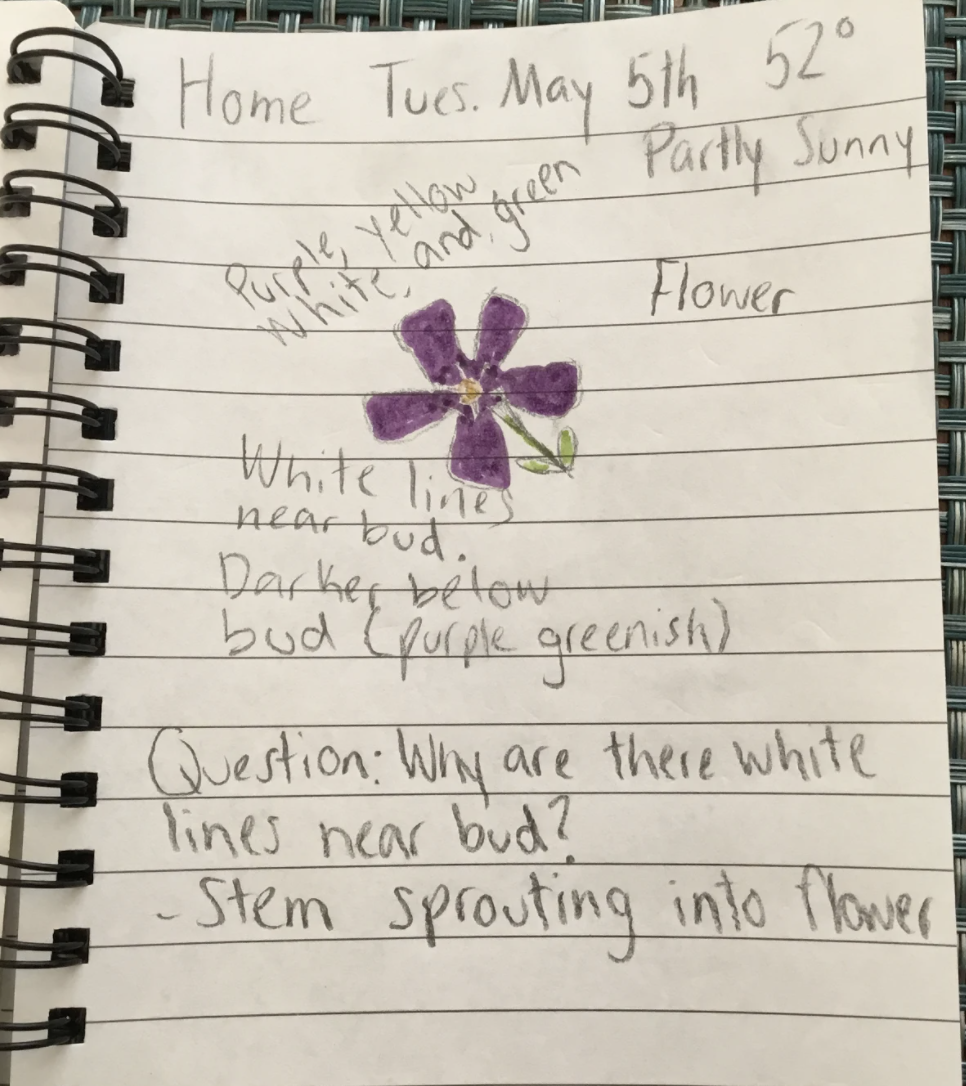 Home Tues. May 5th 52°
Partly Sunny
Purple, yellow
white, and green
Flower
White lines
near bud.
Darker below
bud (purple greenish)
Question: Why are there white
lines near bud?
- Stem sprouting into flower